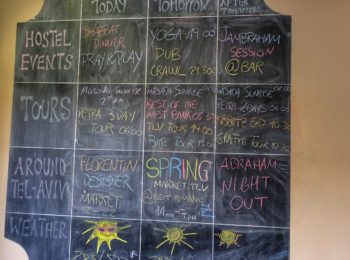 TODAY
TOMORROW
AFTER
TOMORROW
HOSTEL
EVENTS
SHABBAT
DINNER
PRAY & PLAY
YOGA 19:00
PUB
CRAWL 21:30
JAMBRAHAM
SESSION
@BAR
TOURS
MASADA SUNRISE
PETRA 3 DAY
TOUR 06:00
MASADA SUNRISE
BEST OF THE
WEST BANK
TLV TOUR
BIKE TOUR
MASADA SUNRISE
PETRA 2 DAYS
AROUND
TEL-AVIV
FLORENTIN
DESIGNER
MARKET
SPRING
MARKET, TLV
@BEIT ROMANO
11AM-7PM
ABRAHAM
NIGHT
OUT
WEATHER